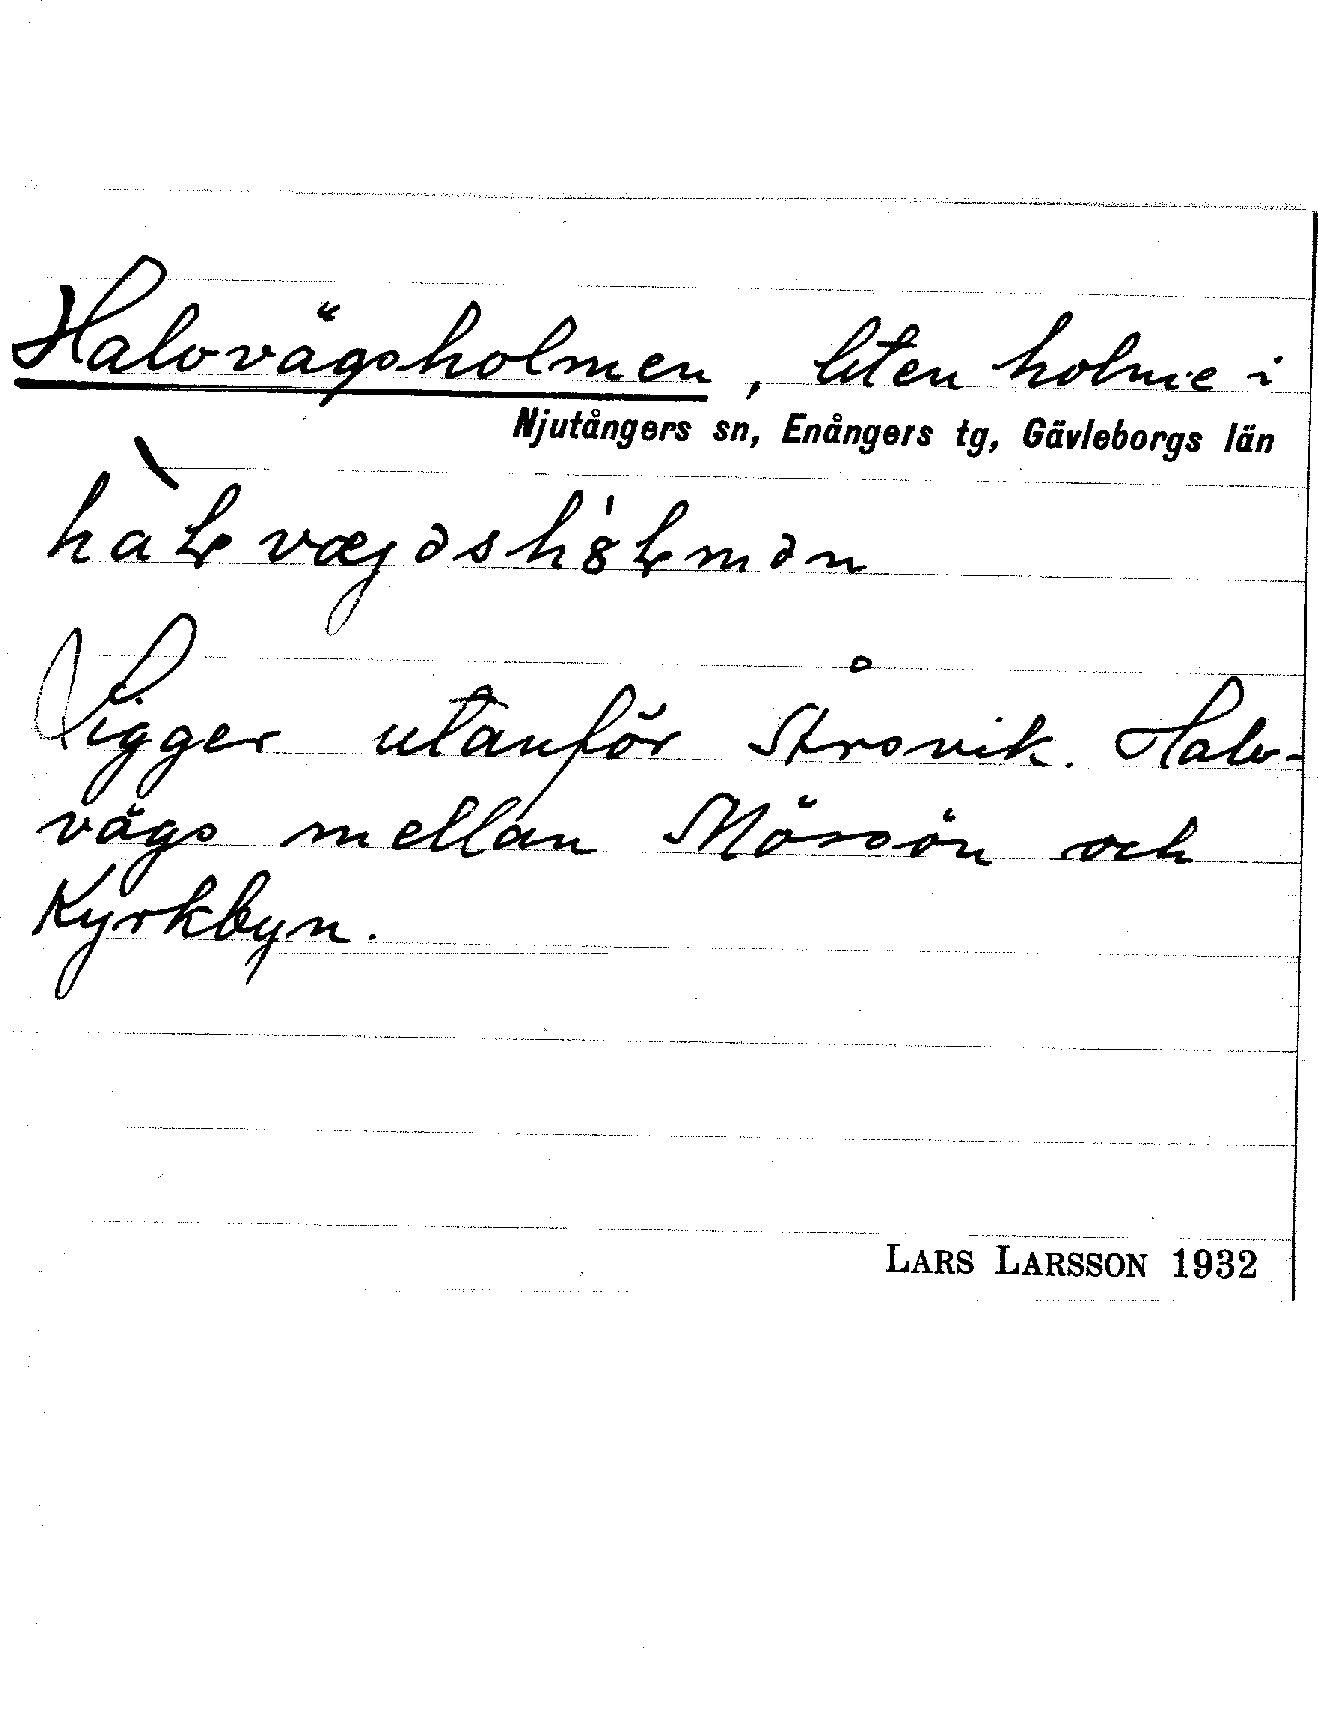 Halvvägsholmen, liten holme i
Njutångers sn, Enångers tg, Gävleborgs län
Ligger utanför Årsvik. Halv-
vägs mellan Mössön och
Kyrkbyn.
LARS LARSSON 1932